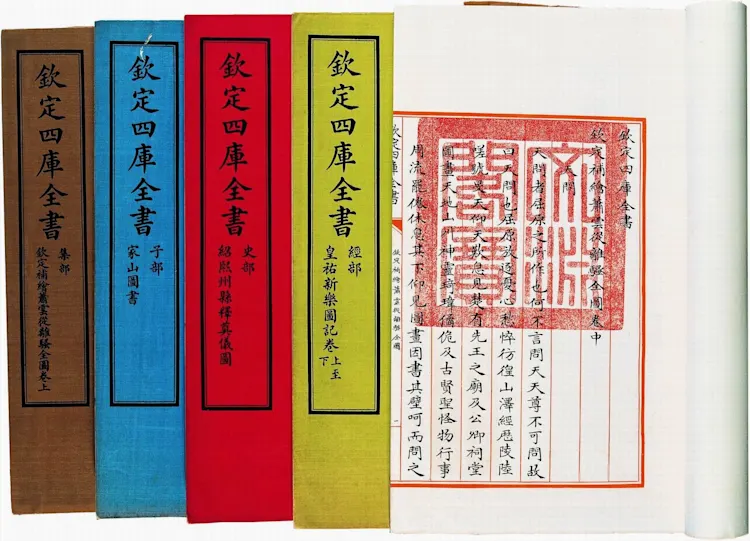 欽定四庫全書
欽定補繪蕭雲從離騷全圖卷中
天問
天問者屈原之所作也何不言問天天尊不可問故
曰天問也屈原放逐憂心愁悴彷徨山澤經厯陵陸
嗟號旻天仰天歎息見楚有先王之廟及公卿祠堂
圖畫天地山川神靈琦瑋僪佹及古賢聖怪物行事
周流罷倦休息其下仰見圖畫因書其壁呵而問之
欽定四庫全書
欽定補繪蕭雲從離騷全圖
文淵閣寶
欽定四庫全書
經部
皇祐新樂圖記卷上至下
欽定四庫全書
史部
紹熙州縣釋奠儀圖
欽定四庫全書
子部
家山圖書
欽定四庫全書
集部
欽定補繪蕭雲從離騷全圖卷上